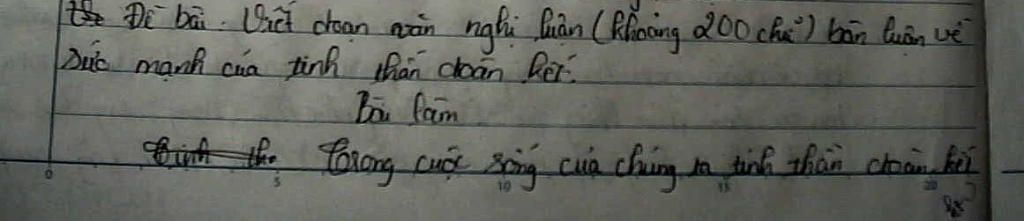 Đề bài. Viết đoạn văn nghị luận (khoảng 200 chữ) bàn luận về
sức mạnh của tinh thần đoàn kết.
Bài làm
Trong cuộc sống của chúng ta tinh thần đoàn kết
0 5 10 15 20